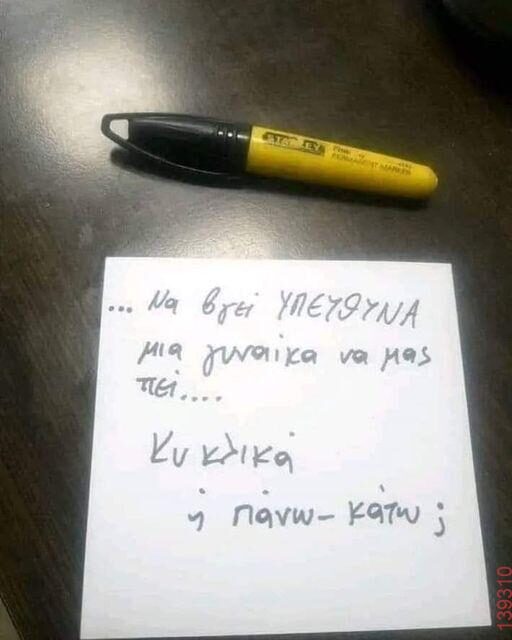 STANLEY
PERMANENT MARKER
... Να βγει ΥΠΕΥΘΥΝΑ
μια γυναίκα να μας
πει....
Κυκλικά
ή πάνω-κάτω;
139310